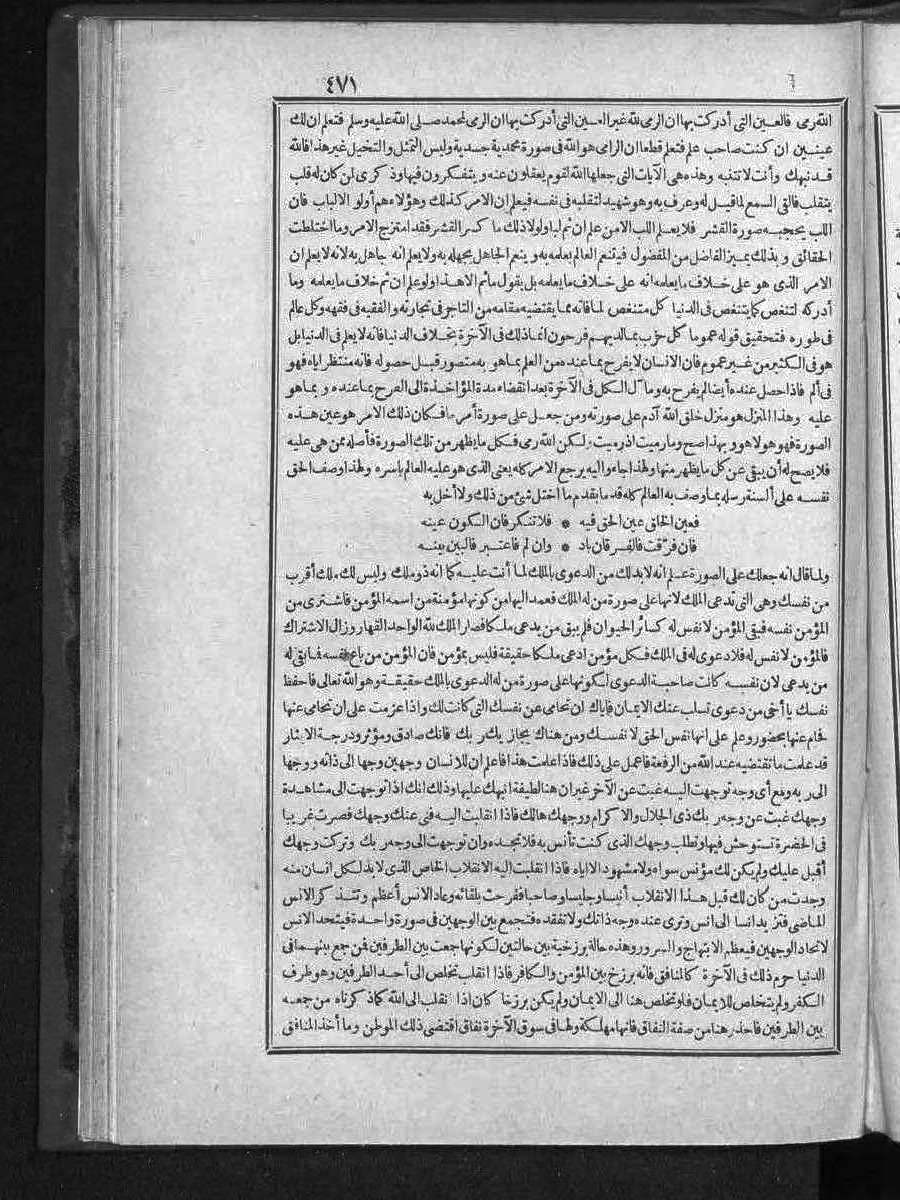 ٤٧١
الله رمى فالعين التى أدركت بها ان الرمى لله غير العين التى أدركت بها ان الرمى لمحمد صلى الله عليه وسلم فتعلم ان لك
عينين ان كنت صاحب علم فتعلم قطعا ان الرامى هو الله فى صورة محمدية جسدية وليس التمثل والتخيل غير هذا فالله
قد نبهك وأنت لا تتنبه وهذه هى الآيات التى جعلها الله لقوم يعقلون عنه و يتفكرون فيها وذكرى لمن كان له قلب
يتقلب فالتى السمع لما قيل له وعرف به وهو شهيد لتقلبه فى نفسه فيعلم ان الامر كذلك وهؤلاء هم أولو الالباب فان
اللب يحجبه صورة القشر فلا يعلم اللب الا من علم ان ثم لبا ولولا ذلك ما كسر القشر فقد امتزج الامر وما اختلطت
الحقائق و بذلك يميز الفاضل من المفضول فيتنعم العالم بعلمه به و ينعم الجاهل بجهله به ولا يعلم انه جاهل به لانه لا يعلم ان
الامر الذى هو على خلاف ما يعلمه انه على خلاف ما يعلمه بل يقول ما ثم الا هذا ولو علم ان ثم خلاف ما يعلمه وما
أدركه لتنغص كما يتنغص فى الدنيا كل متنغص لما فاته مما يقتضيه مقامه من التاجر فى تجارته والفقيه فى فقهه وكل عالم
فى طوره فتحقيق قوله عموما كل حزب بما لديهم فرحون انما ذلك فى الآخرة بخلاف الدنيا فانه لا يعلم فى الدنيا بل
هو فى الكثير من غير عموم فان الانسان لا يفرح بما عنده من العلم بما هو به متصور قبل حصوله فانه منتظر اياه فهو
فى ألم فاذا حصل عنده أيضا لم يفرح به وما آل الكل فى الآخرة بعد انقضاء مدة المؤاخذة الى الفرح بما عنده و بما هو
عليه وهذا المنزل هو منزل خلق الله آدم على صورته ومن جعل على صورة أمر ما فكان ذلك الامر هو عين هذه
الصورة فهو هو لا هو و بهذا صح وما رميت اذ رميت ولكن الله رمى فكل ما يظهر من تلك الصورة فأصله ممن هى عليه
فلا يصح له أن يبقى عن كل ما يظهر منها ولهذا جاء واليه يرجع الامر كله يعنى الذى هو عليه العالم بأسره ولهذا وصف الحق
نفسه على ألسنة رسله بما وصف به العالم كله قدما بقدم ما اختل شئ من ذلك ولا أخل به
فعين الخلق عين الحق فيه * فلا تنكر فان الكون عينه
فان فرّقت فالفرقان باد * وان لم فاعتبر فالبين بينه
ولما قال انه جعلك على الصورة علم انه لا بد لك من الدعوى بالملك لما أنت عليه كما انه ذو ملك وليس لك ملك أقرب
من نفسك وهى التى تدعى الملك لانها على صورة من له الملك فعمد اليها من كونها مؤمنة من اسمه المؤمن فاشترى من
المؤمن نفسه فبقى المؤمن لا نفس له كسائر الحيوان فلم يبق من يدعى ملكا فصار الملك لله الواحد القهار وزال الاشتراك
فالمؤمن لا نفس له فلا دعوى له فى الملك فكل مؤمن ادعى ملكا حقيقة فليس بمؤمن فان المؤمن من باع نفسه فما بقى له
من يدعى لان نفسه كانت صاحبة الدعوى لكونها على صورة من له الدعوى بالملك حقيقة وهو الله تعالى فاحفظ
نفسك يا أخى من دعوى تسلب عنك الايمان فاياك ان تحامى عن نفسك التى كانت لك واذا عزمت على ان تحامى عنها
فحام عنها بحضور وعلم على انها نفس الحق لا نفسك ومن هناك يجازيك ربك فانك صادق ومؤثر ودرجة الايثار
قد علمت ما تقتضيه عند الله من الرفعة فاعمل على ذلك فاذا علمت هذا فاعلم ان للانسان وجهين وجها الى ذاته ووجها
الى ربه ومع أى وجه توجهت اليه غبت عن الآخر غير ان هنا لطيفة انبهك عليها وذلك انك اذا توجهت الى مشاهدة
وجهك غبت عن وجه ربك ذى الجلال والاكرام ووجهك هالك فاذا انقلبت اليه فنى عنك وجهك فصرت غريبا
فى الحضرة تستوحش فيها وتطلب وجهك الذى كنت تأنس به فلا تجده وان توجهت الى وجه ربك وتركت وجهك
أقبل عليك ولم يكن لك مؤنس سواه ولا مشهود الا اياه فاذا انقلبت اليه الانقلاب الخاص الذى لا بد لكل انسان منه
وجدت من كان لك قبل هذا الانقلاب أنيسا وجليسا وصاحبا ففرحت بلقائه وعاد الانس أعظم وتتذكر الانس
الماضى فتزيد أنسا الى أنس وترى عنده وجه ذاتك ولا تفقده فتجمع بين الوجهين فى صورة واحدة فيتحد الانس
لاتحاد الوجهين فيعظم الابتهاج والسرور وهذه حالة برزخية بين حالتين لكونها جمعت بين الطرفين فمن جمع بينهما فى
الدنيا حرم ذلك فى الآخرة كالمنافق فانه برزخ بين المؤمن والكافر فاذا انقلب تخلص الى أحد الطرفين وهو طرف
الكفر ولم يتخلص للايمان فلو تخلص هنا الى الايمان ولم يكن برزخا كان اذا انقلب الى الله كما ذكرناه من جمعه
بين الطرفين فاحذر هنا من صفة النفاق فانها مهلكة ولها فى سوق الآخرة نفاق اقتضى ذلك الموطن وما أخذ المنافق